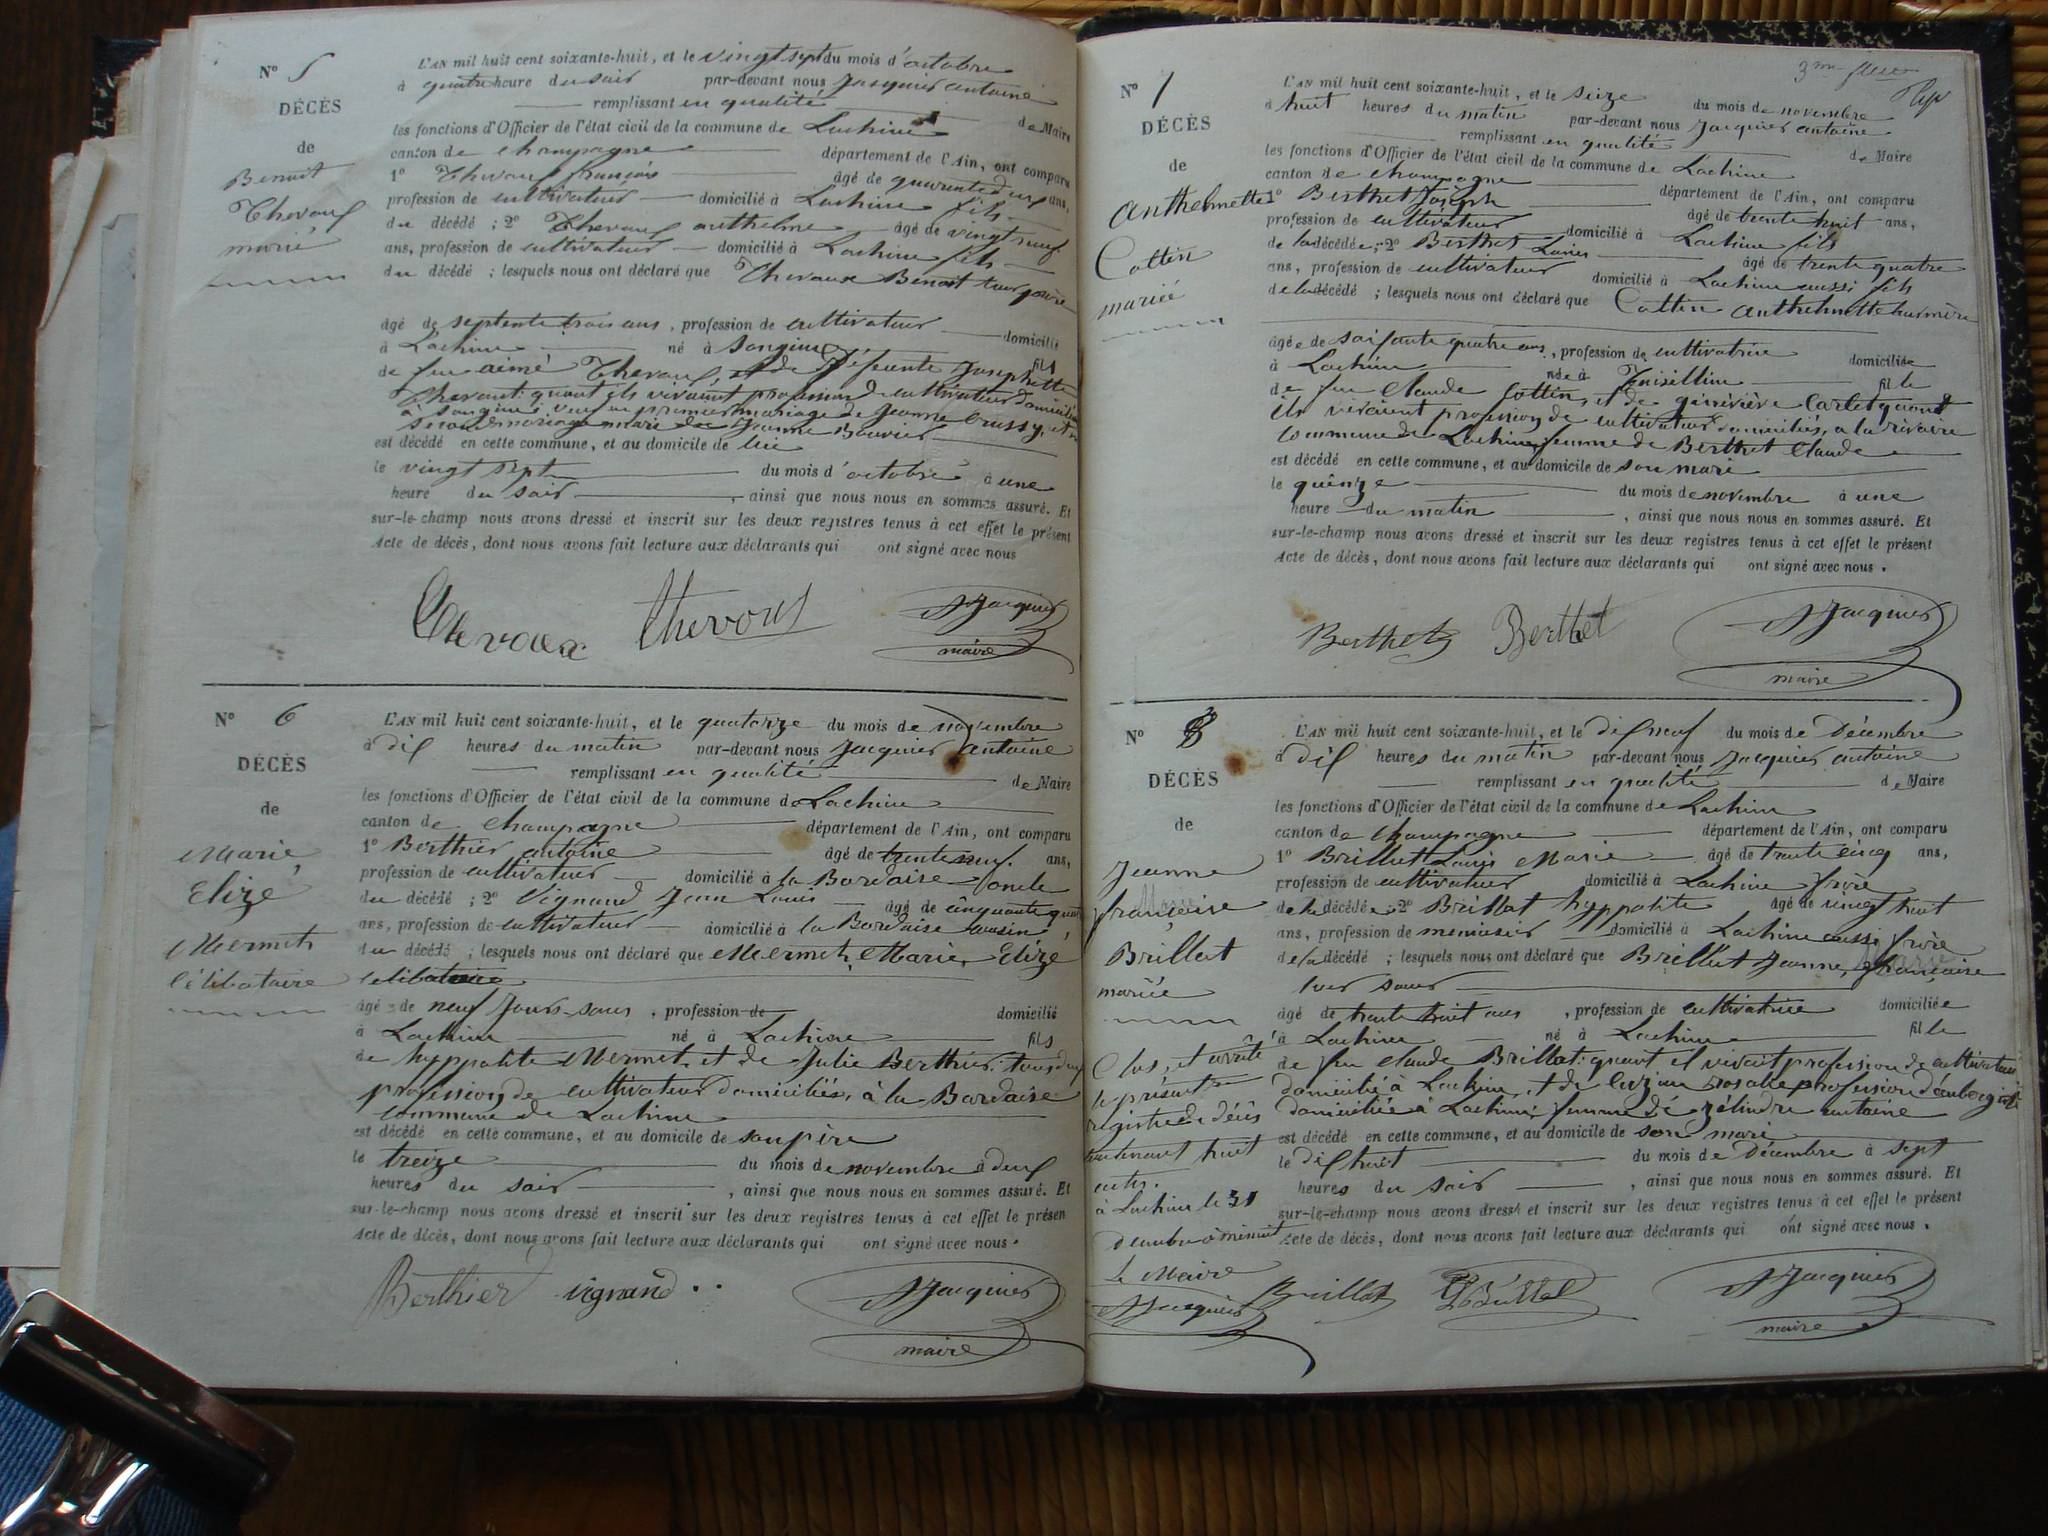 N° 5
DÉCÈS
de
Benoit
Thevoux
marié
L'AN mil huit cent soixante-huit, et le vingt sept du mois d'octobre
à quatre heure du soir par-devant nous Jacquier antoine
remplissant en qualité de Maire
les fonctions d'Officier de l'état civil de la commune de Lachine
canton de champagne département de l'Ain, ont comparu
1° Thevoux françois âgé de quarante deux ans,
profession de cultivateur domicilié à Lachine fils
du décédé ; 2° Thevoux anthelme âgé de vingt neuf
ans, profession de cultivateur domicilié à Lachine fils
du décédé ; lesquels nous ont déclaré que Thevoux Benoit leur père
âgé de septente trois ans, profession de cultivateur domicilié
à Lachine né à Songieu fils
de feu aimé Thevoux, et de Défeunte Josephette
Thevout: quant ils vivaient profession de cultivateur domiciliés
à Songieu: veuf en premier mariage de Jeanne Crussy, et en
second mariage mari de Jeanne Bouvier
est décédé en cette commune, et au domicile de lui
le vingt sept du mois d'octobre à une
heure du soir, ainsi que nous nous en sommes assuré. Et
sur-le-champ nous avons dressé et inscrit sur les deux registres tenus à cet effet le présent
Acte de décès, dont nous avons fait lecture aux déclarants qui ont signé avec nous
Thevoux Thevoux Jacquier
maire
N° 6
DÉCÈS
de
Marie
Elize
Mermet
Célibataire
L'AN mil huit cent soixante-huit, et le quatorze du mois de novembre
à dix heures du matin par-devant nous Jacquier antoine
remplissant en qualité de Maire
les fonctions d'Officier de l'état civil de la commune de Lachine
canton de champagne département de l'Ain, ont comparu
1° Berthier antoine âgé de trente neuf ans,
profession de cultivateur domicilié à la Bordaise oncle
du décédé ; 2° Vignand Jean Louis âgé de cinquante quatre
ans, profession de cultivateur domicilié à la Bordaise cousin,
du décédé ; lesquels nous ont déclaré que Mermet, Marie, Elize
célibataire
âgé de neuf Jours sans, profession de domicilié
à Lachine né à Lachine fils
de hyppolite Mermet, et de Julie Berthier: tous deux
profession de cultivateur domiciliés, à la Bordaise
commune de Lachine
est décédé en cette commune, et au domicile de son père
le treize du mois de novembre à deux
heures du soir, ainsi que nous nous en sommes assuré. Et
sur-le-champ nous avons dressé et inscrit sur les deux registres tenus à cet effet le présen
Acte de décès, dont nous avons fait lecture aux déclarants qui ont signé avec nous.
Berthier vignand Jacquier
maire
3me
N° 7
DÉCÈS
de
Anthelmette
Cottin
mariée
L'AN mil huit cent soixante-huit, et le seize du mois de novembre
à huit heures du matin par-devant nous Jacquier antoine
remplissant en qualité de Maire
les fonctions d'Officier de l'état civil de la commune de Lachine
canton de champagne département de l'Ain, ont comparu
1° Berthet Joseph âgé de trente huit ans,
profession de cultivateur domicilié à Lachine fils
de la décédée ; 2° Berthet Louis âgé de trente quatre
ans, profession de cultivateur domicilié à Lachine aussi fils
de la décédé ; lesquels nous ont déclaré que Cottin anthelmette leur mère
âgée de soixante quatre ans, profession de cultivatrice domiciliée
à Lachine née à fille
de feu Claude Cottin, et de généviève Carlet quand
ils vivaient profession de cultivateur domiciliés, a la rivoire
commune de Lachine, femme de Berthet Claude
est décédé en cette commune, et au domicile de son mari
le quinze du mois de novembre à une
heure du matin, ainsi que nous nous en sommes assuré. Et
sur-le-champ nous avons dressé et inscrit sur les deux registres tenus à cet effet le présent
Acte de décès, dont nous avons fait lecture aux déclarants qui ont signé avec nous.
Berthet Berthet Jacquier
maire
N° 8
DÉCÈS
de
Jeanne
françoise
Brillat
mariée
L'AN mil huit cent soixante-huit, et le dix neuf du mois de Décembre
à dix heures du matin par-devant nous Jacquier antoine
remplissant en qualité de Maire
les fonctions d'Officier de l'état civil de la commune de Lachine
canton de champagne département de l'Ain, ont comparu
1° Brillat Louis Marie âgé de trante cinq ans,
profession de cultivateur domicilié à Lachine frère
de la décédée ; 2° Brillat hyppolite âgé de vingt huit
ans, profession de menuisier domicilié à Lachine aussi frère
de la décédé ; lesquels nous ont déclaré que Brillat Jeanne, françoise
leur sœur
âgé de trante huit ans, profession de cultivatrice domiciliée
à Lachine né à Lachine fille
de feu Claude Brillat: quant il vivait profession de cultivateur
domicilié à Lachine, et de Rosalie profession d'aubergiste
domiciliée à Lachine: femme de antoine
est décédé en cette commune, et au domicile de son mari
le dix huit du mois de Décembre à sept
heures du soir, ainsi que nous nous en sommes assuré. Et
sur-le-champ nous avons dressé et inscrit sur les deux registres tenus à cet effet le présent
Acte de décès, dont nous avons fait lecture aux déclarants qui ont signé avec nous.
Brillat Jacquier
maire
Clos, et arrêté
le présent
registre de décès
contenant huit
actes.
à Lachine le 31
décembre à minuit
Le Maire
Jacquier